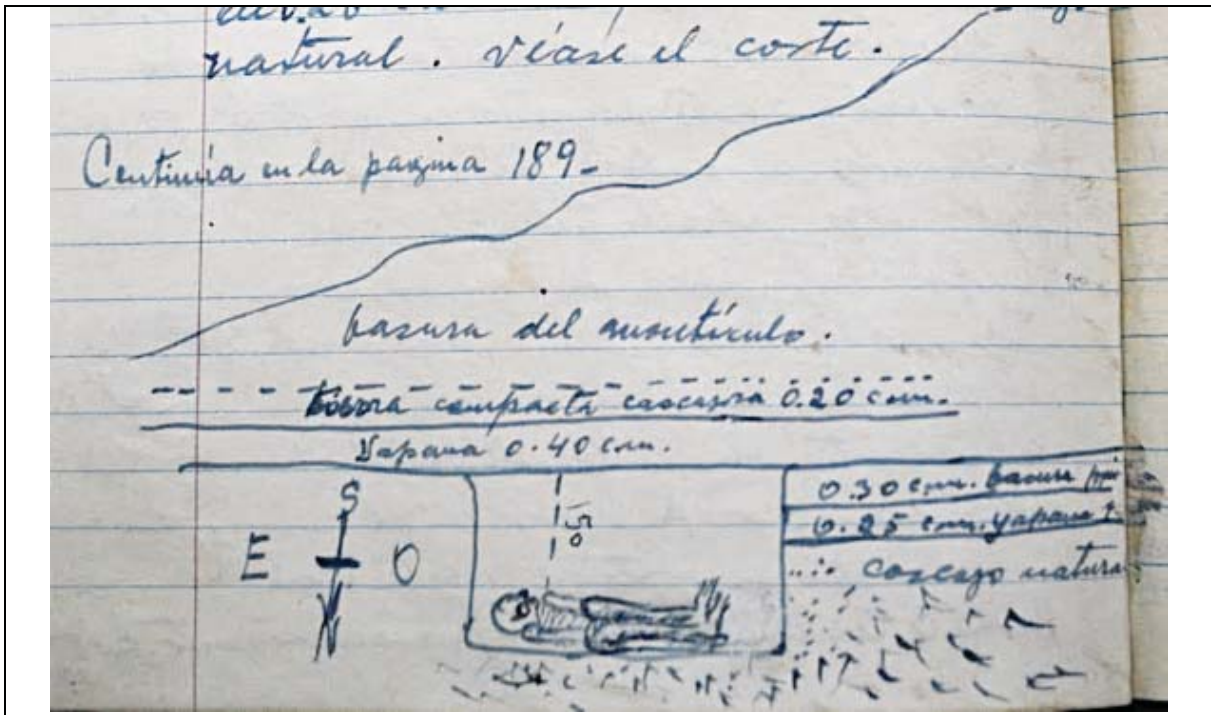 natural. Véase el corte.
Continúa en la pagina 189-
basura del montículo.
tierra compacta cascajosa 0.20 cm.
Yapana 0.40 cm.
S
E O
N
1.50
0.30 cm. basura
0.25 cm. yapana
cascajo natura